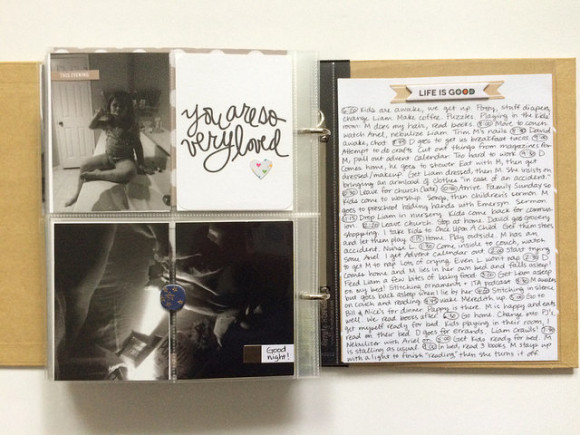 THIS EVENING
you are so
very loved
Good
night!
LIFE IS GOOD
6:00 Kids are awake, we get up. Potty, stuff diapers,
change Liam. Make coffee. Puzzles. Playing in the kids'
room. M does my hair, read books. Move to couch,
watch Ariel, nebulize Liam. Trim M's nails. David
awake, chat. D goes to get us breakfast tacos.
Attempt to do crafts. Cut out things from magazines for
M, pull out advent calendar. Too hard to work. D
comes home, he goes to shower. Eat with M, then get
dressed/makeup. Get Liam dressed, then M. She insists on
bringing an armload of clothes "in case of an accident."
Leave for church (late). Arrive. Family Sunday so
kids come to worship. Songs, then children's sermon. M
goes to preschool holding hands with Emersyn. Sermon.
Drop Liam in nursery. Kids come back for common
ion. Leave church. Stop at home. David gas grocery
shopping. I take kids to Once Upon A Child. Get them shoes
and let them play. Home. Play outside. M has an
accident. Nurse L. Come inside to couch, watch
some Ariel. I get Advent calendar out. Start trying
to get M to nap. Lots of crying. Even L won't nap. D
comes home and M lies in her own bed and falls asleep!
Feed Liam a few bites of baby food. Get Liam asleep
on my bed! Stitching ornaments + ITA podcast. M awakens
but goes back asleep when I lie by her. Stitching in silence
on couch and reading. wake Meredith up. Go to
Bill & Nice's for dinner. Pappy is there. M is happy and eats
well. We read books after. Go home. Change into PJ's,
get myself ready for bed. Kids playing in their room, I
read on their bed. D goes for errands. Liam crawls!
Nebulizer with Ariel on. Get kids ready for bed. M
is stalling as usual. In bed, read 3 books. M stays up
with a light to finish "reading," then she turns it off.